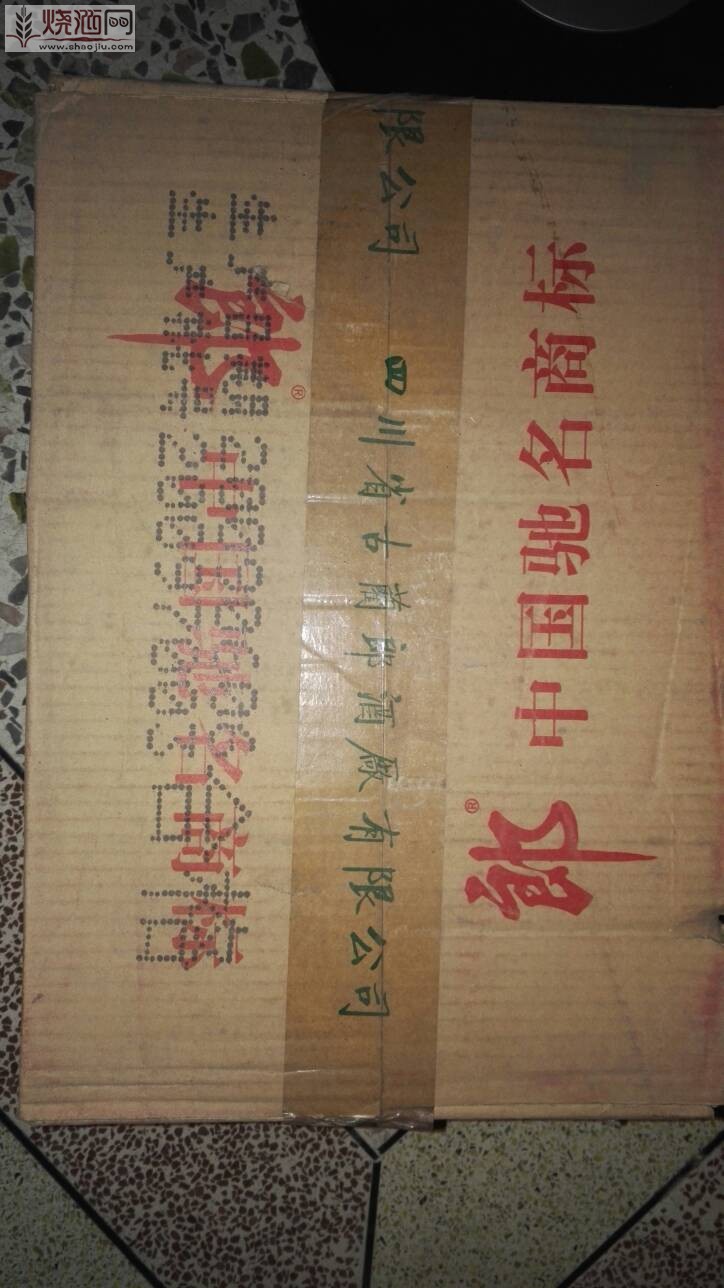 烧酒网
www.shaojiu.com
郎® 中国驰名商标
限公司 四川省古蔺郎酒厂有限公司
郎® 中国驰名商标